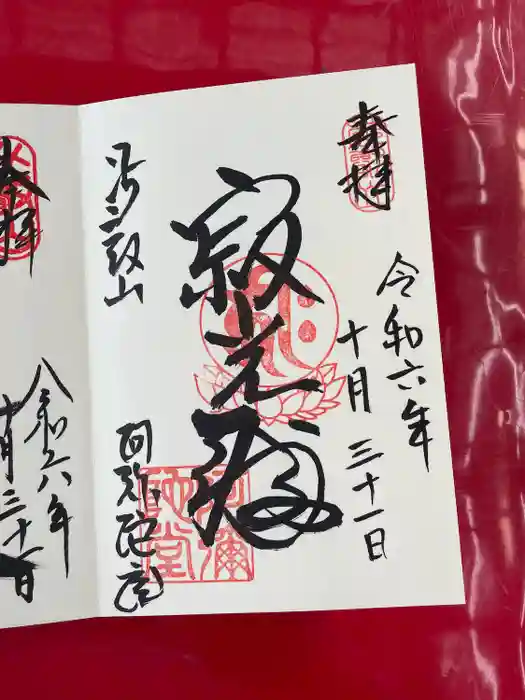 奉拝
令和六年
十月三十一日
寂光殿
山
阿弥陀堂
阿彌
陀堂
奉拝
令和六年
十月三十一日